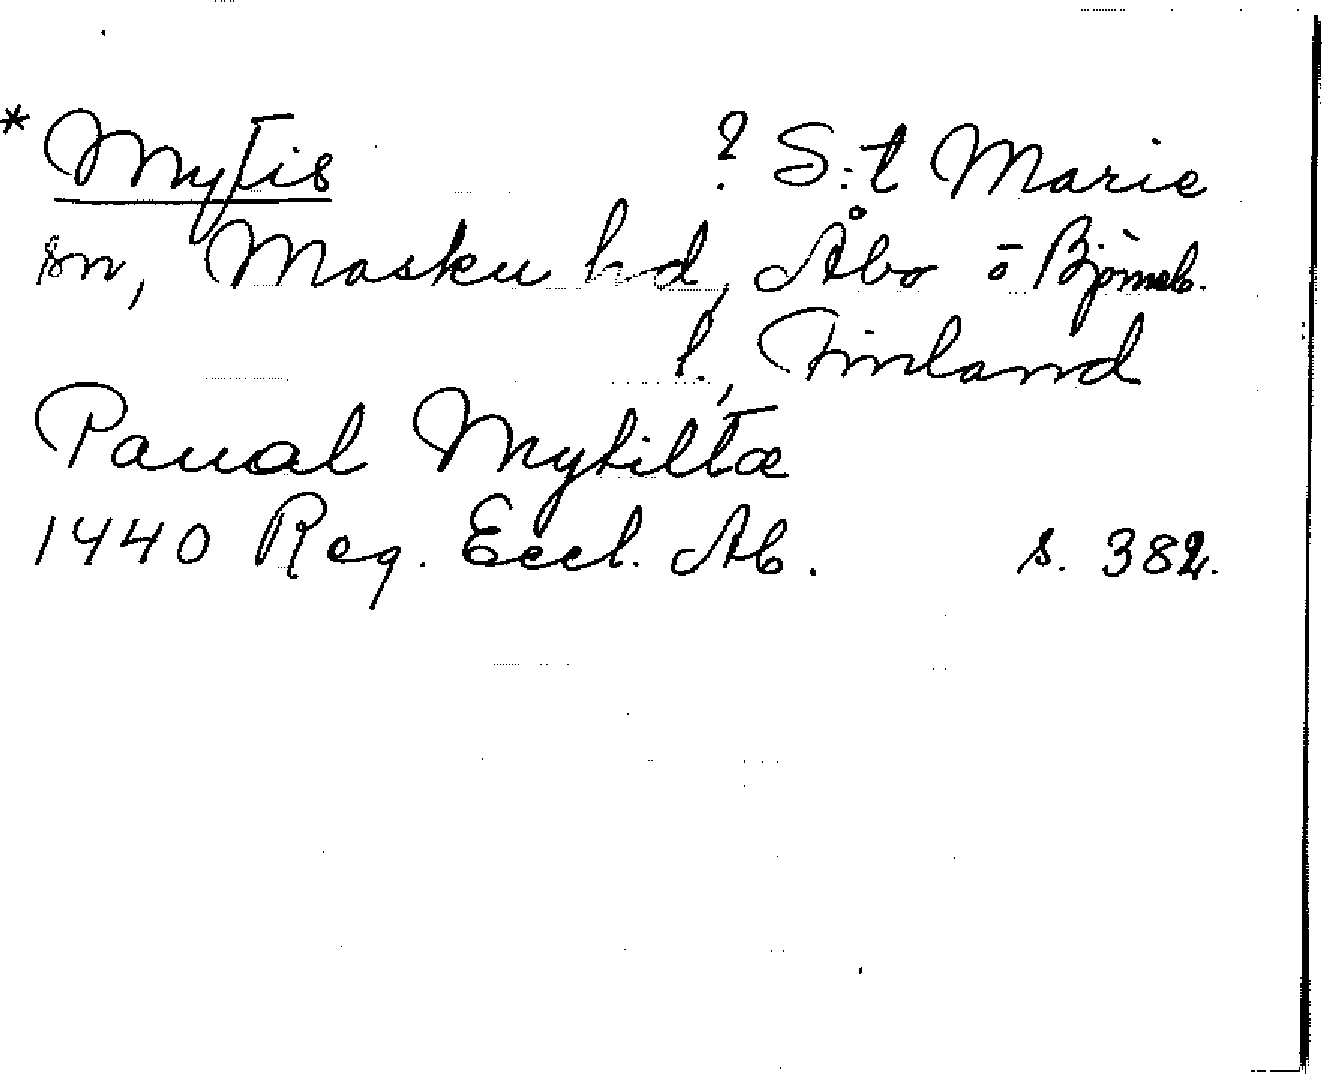 * Mytis ? S:t Marie
sn, Masku hd, Åbo o Björneb.
l., Finland
Paual Mykiltæ
1440 Reg. Eccl. Ab. s. 382.